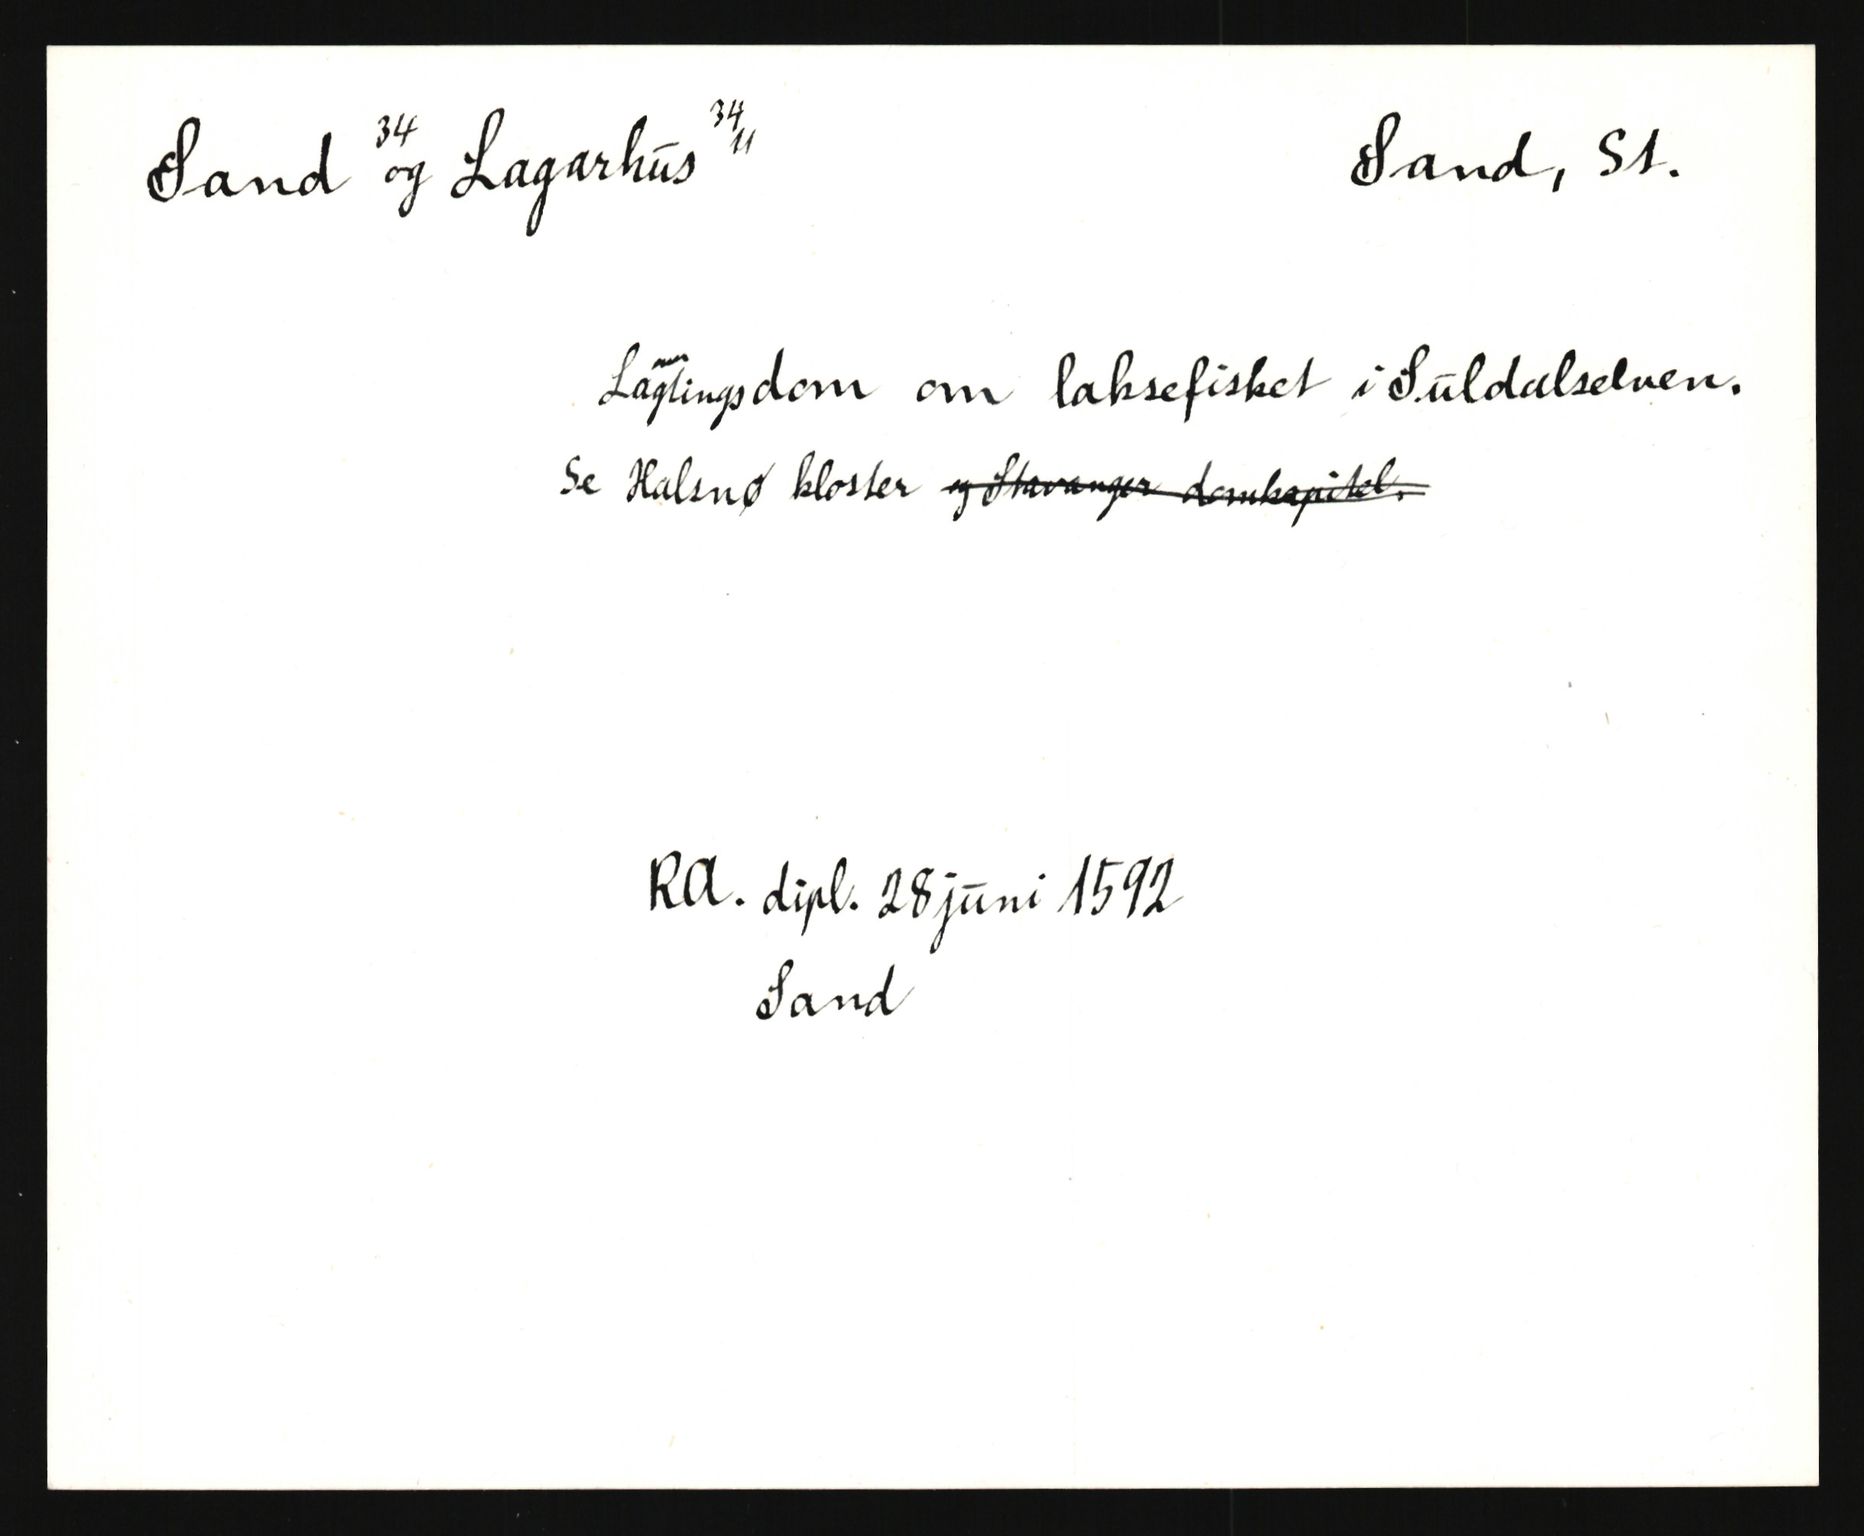 Sand 34 og Lagarhus 34/11 Sand, St.
Lagtingsdom om laksefisket i Suldalselven.
Se Halsnø kloster og Stavanger domkapitel.
RA. dipl. 28 juni 1592
Sand